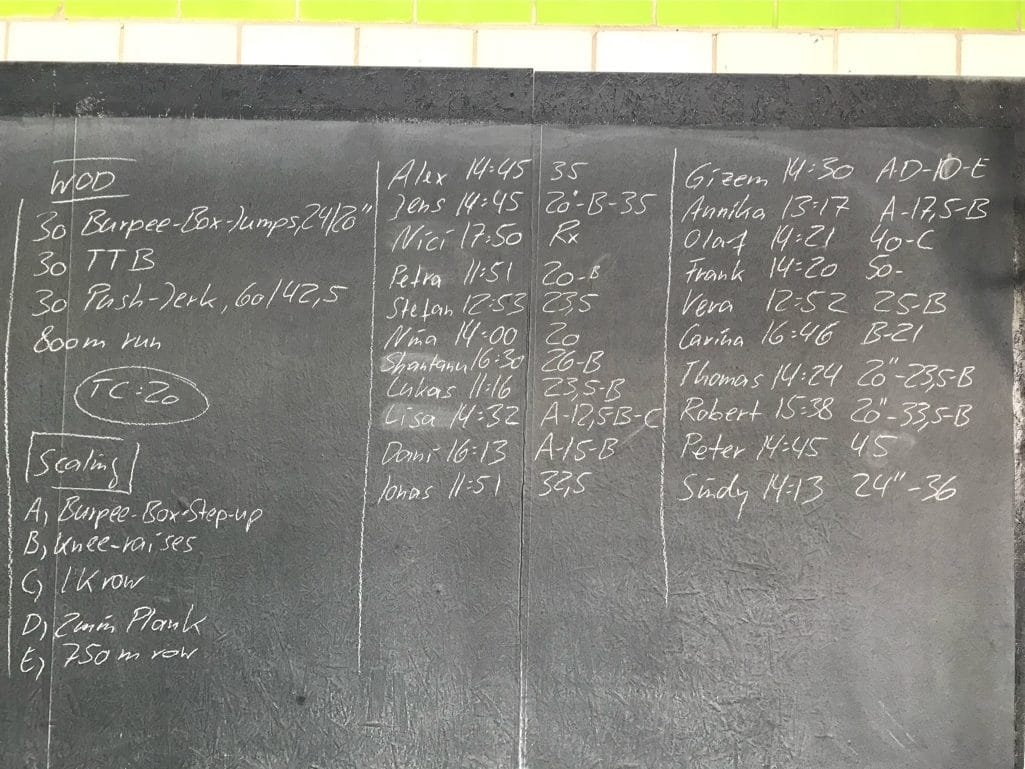 WOD
30 Burpee-Box-Jumps, 24/20"
30 TTB
30 Push-Jerk, 60/42,5
800m run
TC:20
Scaling
A) Burpee-Box-Step-up
B) Knee-raises
C) 1K row
D) 2min Plank
E) 750m row
Alex 14:45 35
Jens 14:45 20"-B-35
Nici 17:50 Rx
Petra 11:51 20-B
Stefan 12:53 23,5
Nina 14:00 20
Shantanu 16:30 26-B
Lukas 11:16 23,5-B
Lisa 14:32 A-12,5-B-C
Dani 16:13 A-15-B
Jonas 11:51 32,5
Gizem 14:30 A-D-10-E
Annika 13:17 A-17,5-B
Olaf 14:21 40-C
Frank 14:20 50-
Vera 12:52 25-B
Carina 16:46 B-21
Thomas 14:24 20"-23,5-B
Robert 15:38 20"-33,5-B
Peter 14:45 45
Sindy 14:13 24"-36